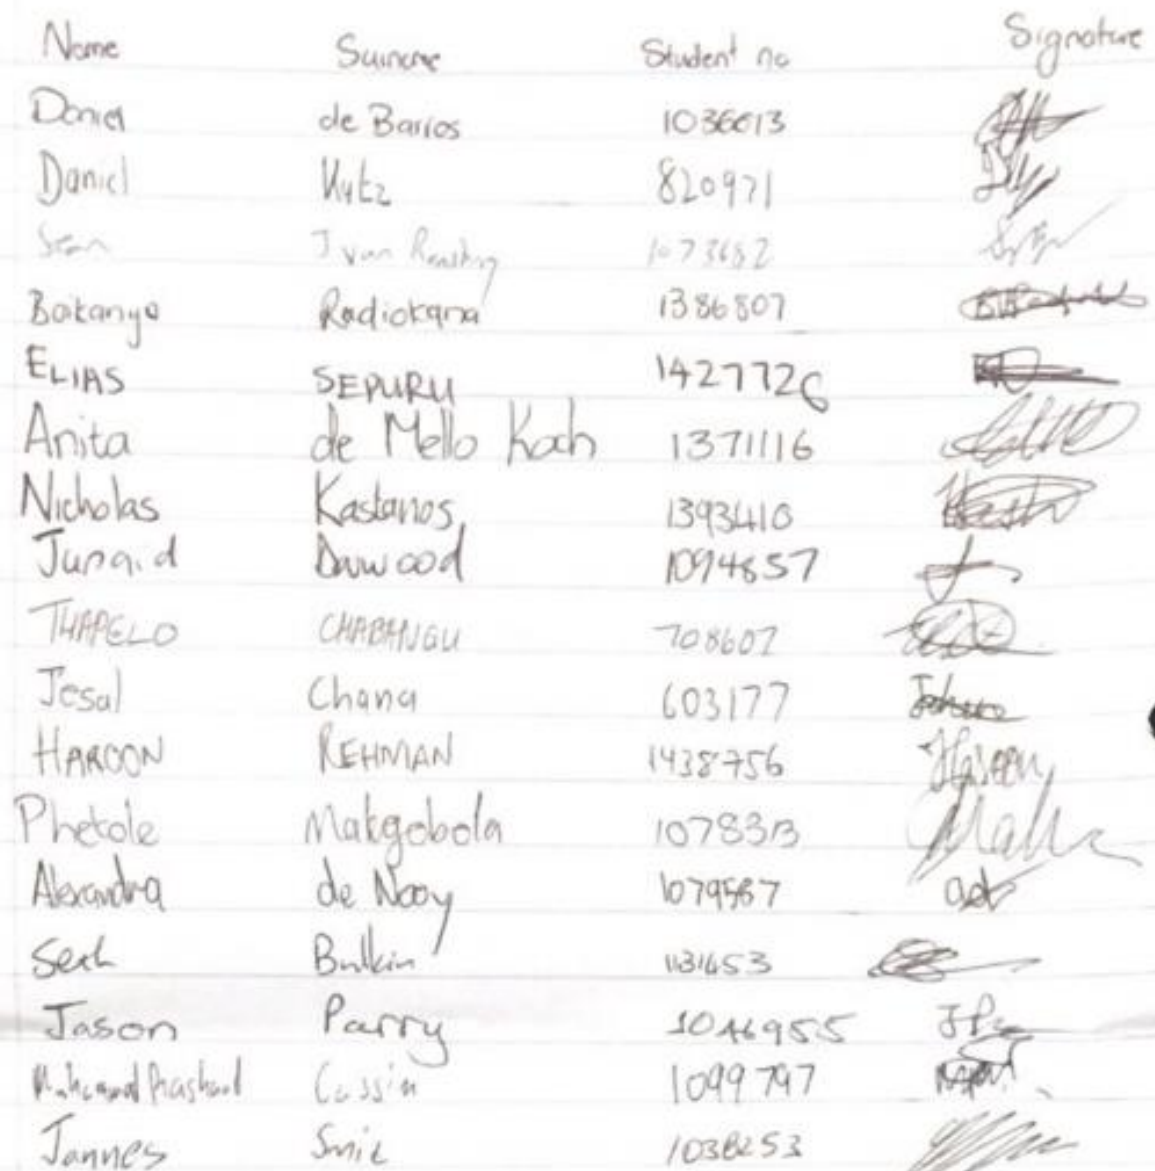 Name Surname Student no Signature
Daniel de Barros 1036613
Daniel Kutz 820971
Sean J van Rensburg 1073682
Bakanyo Radiokana 1386807
ELIAS SEPURU 1427726
Anita de Mello Koch 1371116
Nicholas Kastanos 1393410
Junaid Dawood 1094857
THAPELO CHABANGU 708607
Jesal Chana 603177
HAROON REHMAN 1438756 Haroon
Phetole Makgobola 1078313
Alexandra de Nooy 1079587
Seth Bulkin 1131453
Jason Parry 1046955
Cassim 1099797
Jannes Smit 1038253